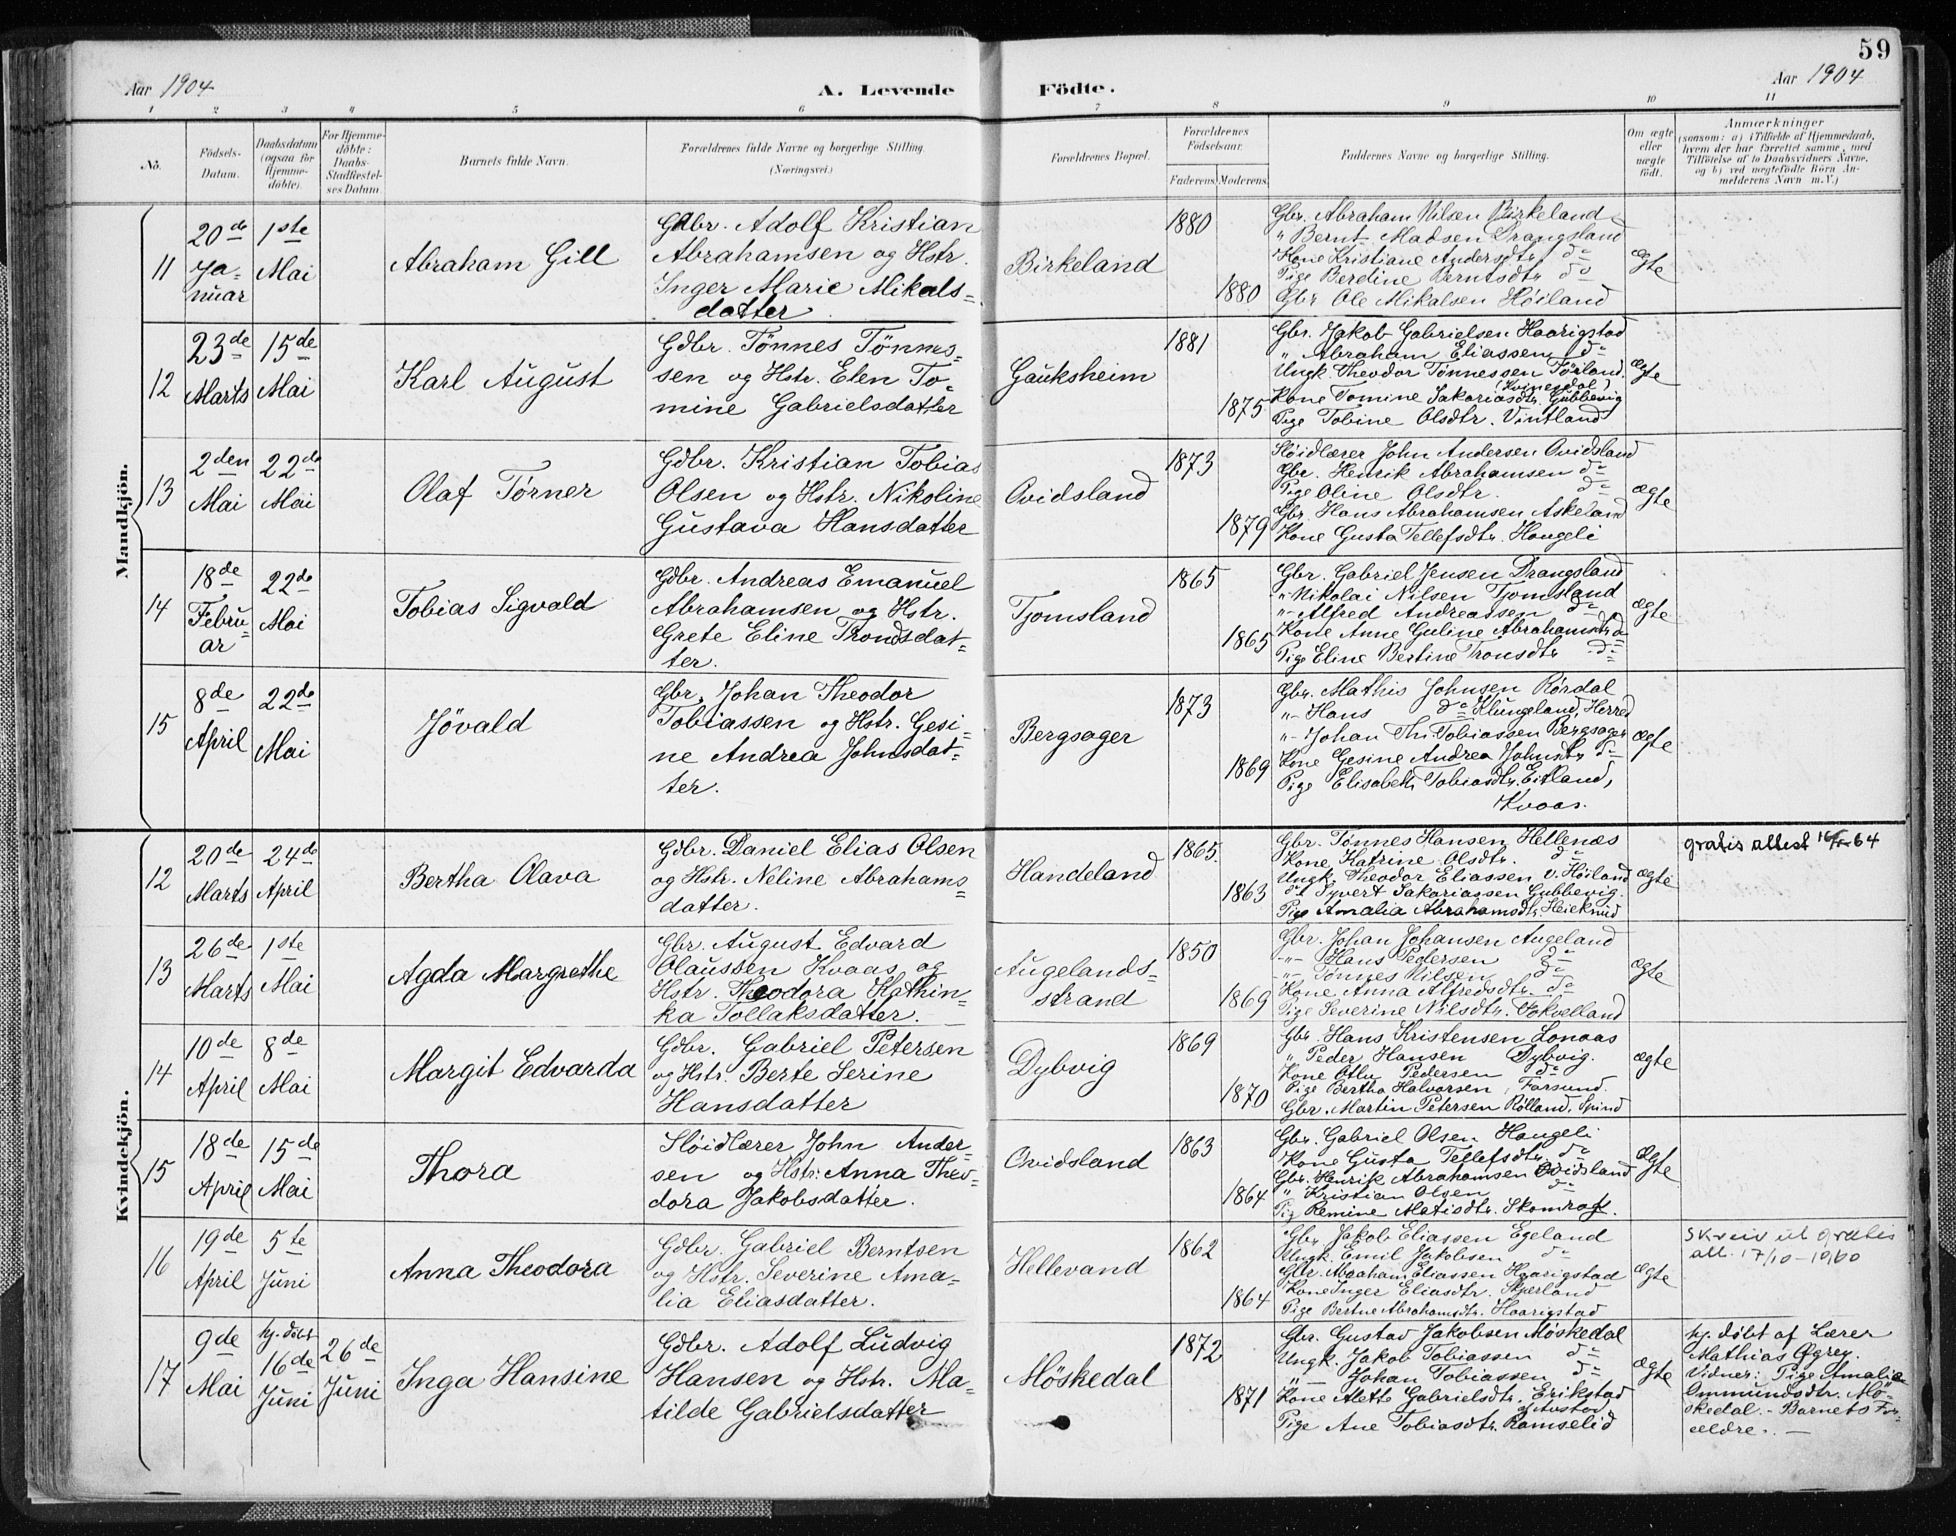 59
Aar 1904
A. Levende
Födte.
Aar 1904
1 2 3 4 5 6 7 8 9 10 11
No.
Födsels-
Datum.
Daabsdatum
(ogsaa for
Hjemme-
döbte).
For Hjemme-
döbte:
Daabs-
Stadfæstel-
ses Datum.
Barnets fulde Navn.
Forældrenes fulde Navne og borgerlige Stilling
(Næringsvei.)
Forældrenes Bopæl.
Forældrenes
Födselsaar.
Faderens. Moderens.
Faddernes Navne og borgerlige Stilling.
Om ægte
eller
uægte
födt.
Anmærkninger
(saasom: a) i Tilfælde af Hjemmedaab,
hvem der har forrettet samme, med
Tilföielse af to Daabsvidners Navne,
og b) ved uægtefödte Börn An-
melderens Navn m. V.)
Mandkjön.
11
20de
Ja-
nuar
1ste
Mai
Abraham Gill
Gdbr. Adolf Kristian
Abrahamsen og Hstr.
Inger Marie Mikals-
datter
Birkeland
1880
1880
Gbr. Abraham Nilsen Birkeland
" Bernt Madsen Drangsland
Kone Kristiane Andersdtr. do
Pige Berdine Berntsdtr do
Gbr Ole Mikalsen Høiland
ægte
12
23de
Marts
15de
Mai
Karl August
Gdbr. Tönnes Tönnes-
sen og Hstr. Elen To-
mine Gabrielsdatter
Gauksheim
1881
1875
Gbr. Jakob Gabrielsen Haarigstad
" Abraham Eliassen do
Ungk Theodor Tønnessen Töiland.
(Kvinesdal)
Kone Tomine Sakariasdtr. Gubbevig
Pige Tobine Olsdtr. Vintland
ægte
13
2den
Mai
22de
Mai
Olaf Törner
Gdbr. Kristian Tobias
Olsen og Hstr. Nikoline
Gustava Hansdatter
Ovidsland
1873
1879
Sløidlærer John Andersen Ovidsland
Gbr. Henrik Abrahamsen do
Pige Oline Olsdtr. do
Gbr Hans Abrahamsen Askeland
Kone Gusta Tellefsdtr. Haugeli
ægte
14
18de
Febru-
ar
22de
Mai
Tobias Sigvald
Gdbr. Andreas Emanuel
Abrahamsen og Hstr.
Grete Eline Trondsdat-
ter.
Tjomsland
1865
1865
Gbr. Gabriel Jensen Drangsland
"- Nikolai Nilsen Tjomsland
"- Alfred Andreassen do
Kone Anne Guline Abrahamsdtr do
Pige Eline Bertine Tronsdtr do
ægte
15
8de
April
22de
Mai
Jövald
Gbr. Johan Theodor
Tobiassen og Hstr. Gesi-
ne Andrea Johnsdat-
ter.
Bergsager
1873
1869
Gbr. Mathis Johnsen Rørdal
"- Hans do Klungeland, Herred
"- Johan Th. Tobiassen Bergsager
Kone Gesine Andrea Johnsdtr do
Pige Elisabeth Tobiasdtr. Eitland,
Kvaas.
ægte
Kvindekjön.
12
20de
Marts
24de
April
Bertha Olava
Gdbr. Daniel Elias Olsen
og Hstr. Neline Abrahams-
datter.
Handeland
1865.
1863
Gbr. Tønnes Hansen Hellenæs
Kone Katrine Olsdtr. do
Ungk. Theodor Eliassen v. Høiland
do Syvert Sakariassen Gubbevig
Pige Amalia Abrahamsdtr. Heieknud
ægte
gratis attest 64
13
26de
Marts
1ste
Mai
Agda Margrethe
Gbr. August Edvard
Olaussen Kvaas og
Hstr. Theodora Kathin-
ka Tollaksdatter.
Augelands-
strand
1850
1869
Gbr. Johan Johansen Augeland
-"- Hans Pedersen do
-"- Tönnes Nilsen do
Kone Anna Alfredsdtr. do
Pige Severine Nilsdtr. Fokvelland
ægte
14
10de
April
8de
Mai
Margit Edvarda
Gdbr. Gabriel Petersen
og Hstr. Berte Serine
Hansdatter
Dybvig
1869
1870
Gbr. Hans Kristensen Lonaas
" Peder Hansen Dybvig.
Kone Otlu Pedersen do
Pige Bertha Halvorsen, Farsund.
Gbr. Martin Petersen Rølland, Spind
ægte
15
18de
April
15de
Mai
Thora
Sløidlærer John Ander-
sen og Hstr: Anna Theo-
dora Jakobsdatter.
Ovidsland
1863
1864
Gbr. Gabriel Olsen Haugeli
Kone Gusta Tellefsdtr. do
Gbr. Henrik Abrahamsen Ovidsland
" Kristian Olsen do
Pig Remine Matisdtr. Skomrag.
ægte
16
19de
April
5te
Juni
Anna Theodora
Gdbr. Gabriel Berntsen
og Hstr. Severine Ama-
lia Eliasdatter.
Hellevand
1862
1864
Gbr Jakob Eliassen Egeland
Ungk. Emil Jakobsen do
Gbr. Abraham Eliassen Haarigstad
Kone Inger Eliasdtr. Skjerland
Pige Bertne Abrahamsdtr. Haarigstad
ægte
Skreiv ut gratis
att. 17/10-1960
17
9de
Mai
hj. døbt
16de
Juni
26de
Juni
Inga Hansine
Gdbr. Adolf Ludvig
Hansen og Hstr. Ma-
tilde Gabrielsdatter
Möskedal
1872
1871
Gbr. Gustav Jakobsen Møskedal
Ungk. Jakob Tobiassen do
"- Johan Tobiassen do
Kone Mette Gabrielsdtr. Erikstad
af Austad
Pige Ane Tobiasdtr. Ramselid
ægte
hj. døbt af Lærer
Mathias Øgrey.
Vidner: Pige Amalie
Ommundsdtr. Mö-
skedal. - Barnets For-
ældre. -